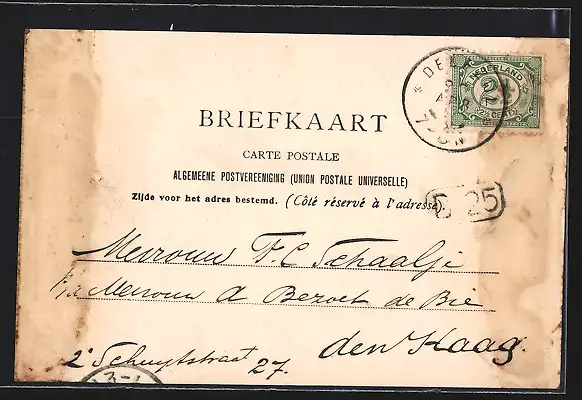 BRIEFKAART
CARTE POSTALE
ALGEMEENE POSTVEREENIGING (UNION POSTALE UNIVERSELLE)
Zijde voor het adres bestemd. (Côté réservé à l'adresse).
NEDERLAND
2½ CENT
25
Mevrouw F. C. Schaalje
p/a Mevrouw A Bezoet de Bie
den Haag.
2e Schuytstraat 27.